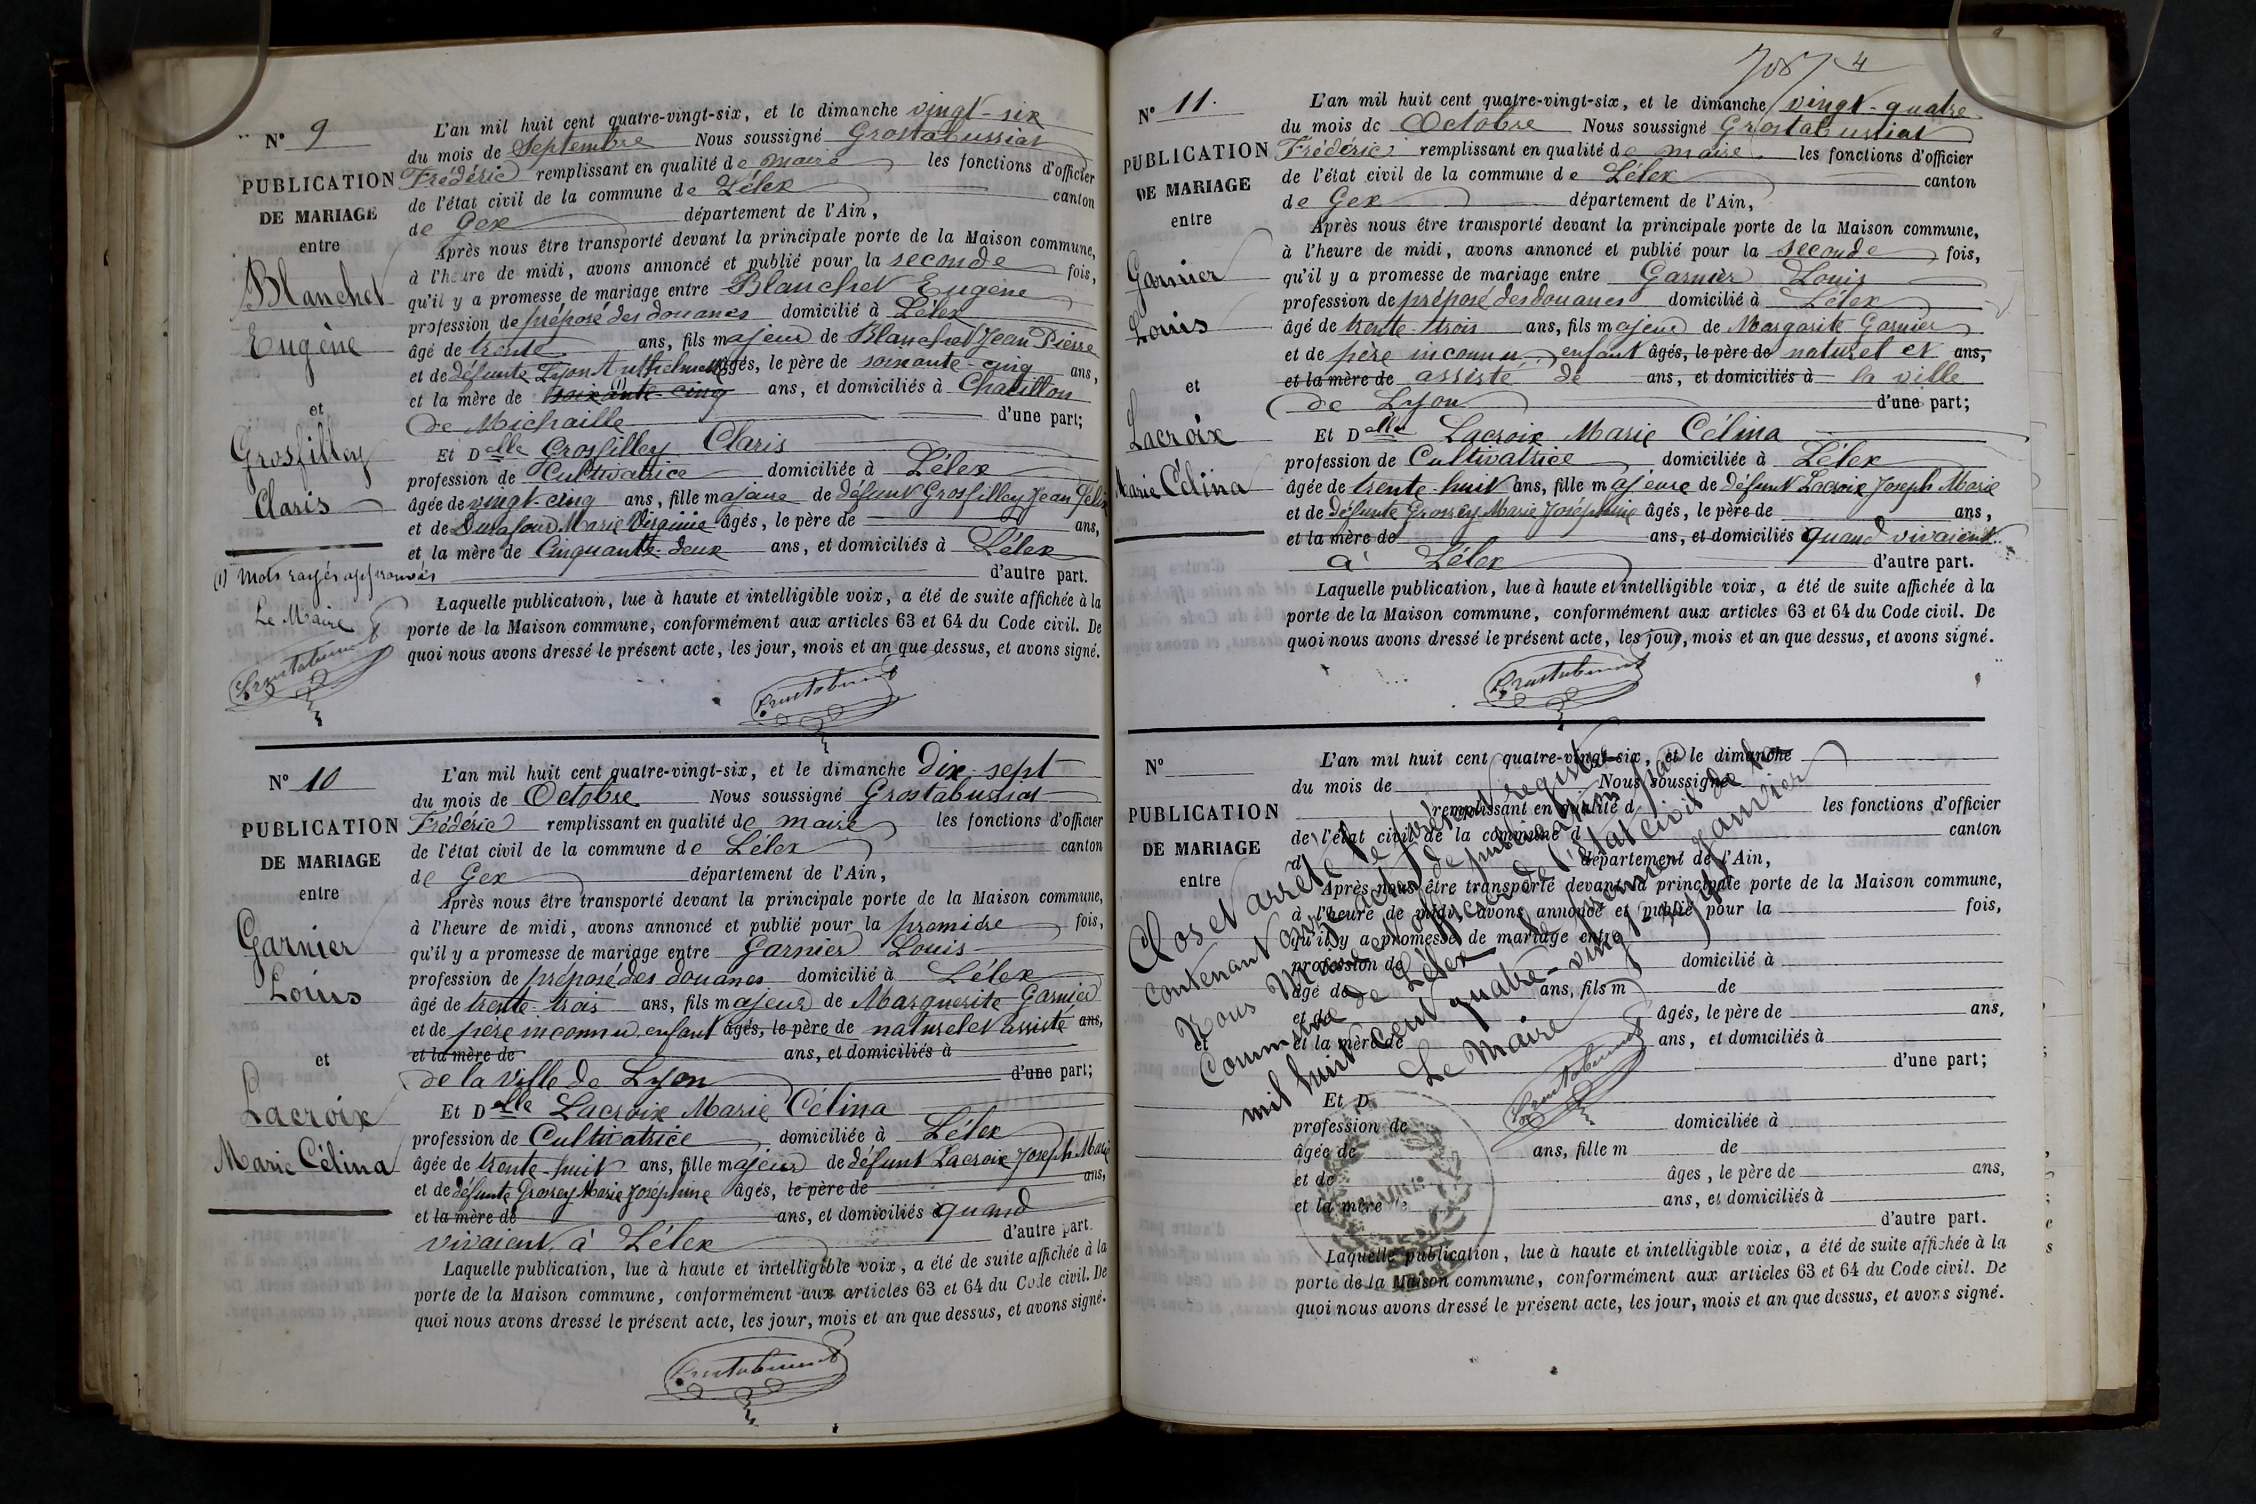 N° 9
PUBLICATION
DE MARIAGE
entre
Blanchet
Eugène
et
Grosfilley
Claris
(1) Mots rayés approuvés
Le Maire
L'an mil huit cent quatre-vingt-six, et le dimanche vingt-six
du mois de Septembre Nous soussigné Grostabussiat
Frédéric remplissant en qualité de maire les fonctions d'officier
de l'état civil de la commune de Lélex canton
de Gex département de l'Ain,
Après nous être transporté devant la principale porte de la Maison commune,
à l'heure de midi, avons annoncé et publié pour la seconde fois,
qu'il y a promesse de mariage entre Blanchet Eugène
profession de préposé des douanes domicilié à Lélex
âgé de trente ans, fils majeur de Blanchet Jean Pierre
et de défunte Lyon Anthelmette âgés, le père de soixante-cinq ans,
et la mère de soixante-cinq (1) ans, et domiciliés à Chatillon
de Michaille d'une part;
Et Delle Grosfilley Claris
profession de Cultivatrice domiciliée à Lélex
âgée de vingt-cinq ans, fille majeure de défunt Grosfilley Jean Félix
et de Durafour Marie Virginie âgés, le père de ans,
et la mère de Cinquante-deux ans, et domiciliés à Lélex
d'autre part.
Laquelle publication, lue à haute et intelligible voix, a été de suite affichée à la
porte de la Maison commune, conformément aux articles 63 et 64 du Code civil. De
quoi nous avons dressé le présent acte, les jour, mois et an que dessus, et avons signé.
Grostabussiat
N° 10
PUBLICATION
DE MARIAGE
entre
Garnier
Loius
et
Lacroix
Marie Célina
L'an mil huit cent quatre-vingt-six, et le dimanche dix-sept
du mois de Octobre Nous soussigné Grostabussiat
Frédéric remplissant en qualité de maire les fonctions d'officier
de l'état civil de la commune de Lélex canton
de Gex département de l'Ain,
Après nous être transporté devant la principale porte de la Maison commune,
à l'heure de midi, avons annoncé et publié pour la première fois,
qu'il y a promesse de mariage entre Garnier Louis
profession de préposé des douanes domicilié à Lélex
âgé de trente-trois ans, fils majeur de Marguerite Garnier
et de père inconnu enfant âgés, le père de naturel et assisté ans,
et la mère de ans, et domiciliés à
de la ville de Lyon d'une part;
Et Delle Lacroix Marie Célina
profession de Cultivatrice domiciliée à Lélex
âgée de trente-huit ans, fille majeur de défunt Lacroix Joseph Marie
et de défunte Grossey Marie Joséphine âgés, le père de ans,
et la mère de ans, et domiciliés quand
vivaient à Lélex d'autre part.
Laquelle publication, lue à haute et intelligible voix, a été de suite affichée à la
porte de la Maison commune, conformément aux articles 63 et 64 du Code civil. De
quoi nous avons dressé le présent acte, les jour, mois et an que dessus, et avons signé.
Grostabussiat
4
N° 11.
PUBLICATION
DE MARIAGE
entre
Garnier
Louis
et
Lacroix
Marie Célina
L'an mil huit cent quatre-vingt-six, et le dimanche vingt-quatre
du mois de Octobre Nous soussigné Grostabussiat
Frédéric remplissant en qualité de maire les fonctions d'officier
de l'état civil de la commune de Lélex canton
de Gex département de l'Ain,
Après nous être transporté devant la principale porte de la Maison commune,
à l'heure de midi, avons annoncé et publié pour la seconde fois,
qu'il y a promesse de mariage entre Garnier Louis
profession de préposé des douanes domicilié à Lélex
âgé de trente-trois ans, fils majeur de Margarite Garnier
et de père inconnu enfant âgés, le père de naturel et ans,
et la mère de assisté de ans, et domiciliés à la ville
de Lyon d'une part;
Et Delle Lacroix Marie Célina
profession de Cultivatrice domiciliée à Lélex
âgée de trente-huit ans, fille majeure de défunt Lacroix Joseph Marie
et de défunte Grossey Marie Joséphine âgés, le père de ans,
et la mère de ans, et domiciliés quand vivaient
à Lélex d'autre part.
Laquelle publication, lue à haute et intelligible voix, a été de suite affichée à la
porte de la Maison commune, conformément aux articles 63 et 64 du Code civil. De
quoi nous avons dressé le présent acte, les jour, mois et an que dessus, et avons signé.
Grostabussiat
N°
PUBLICATION
DE MARIAGE
entre
et
L'an mil huit cent quatre-vingt-six, et le dimanche
du mois de Nous soussigné
remplissant en qualité d les fonctions d'officier
de l'état civil de la commune d canton
d département de l'Ain,
Après nous être transporté devant la principale porte de la Maison commune,
à l'heure de midi, avons annoncé et publié pour la fois,
qu'il y a promesse de mariage entre
profession de domicilié à
âgé de ans, fils m de
et de âgés, le père de ans,
et la mère de ans, et domiciliés à
d'une part;
Et D
profession de domiciliée à
âgée de ans, fille m de
et de âges, le père de ans,
et la mère de ans, et domiciliés à
d'autre part.
Laquelle publication, lue à haute et intelligible voix, a été de suite affichée à la
porte de la Maison commune, conformément aux articles 63 et 64 du Code civil. De
quoi nous avons dressé le présent acte, les jour, mois et an que dessus, et avons signé.
Clos et arrêté le présent registre
contenant onze actes de publication par
Nous Maire et officier de l'état civil de la
Commune de Lélex le premier janvier
mil huit cent quatre-vingt-sept
Le Maire
Grostabussiat
MAIRIE